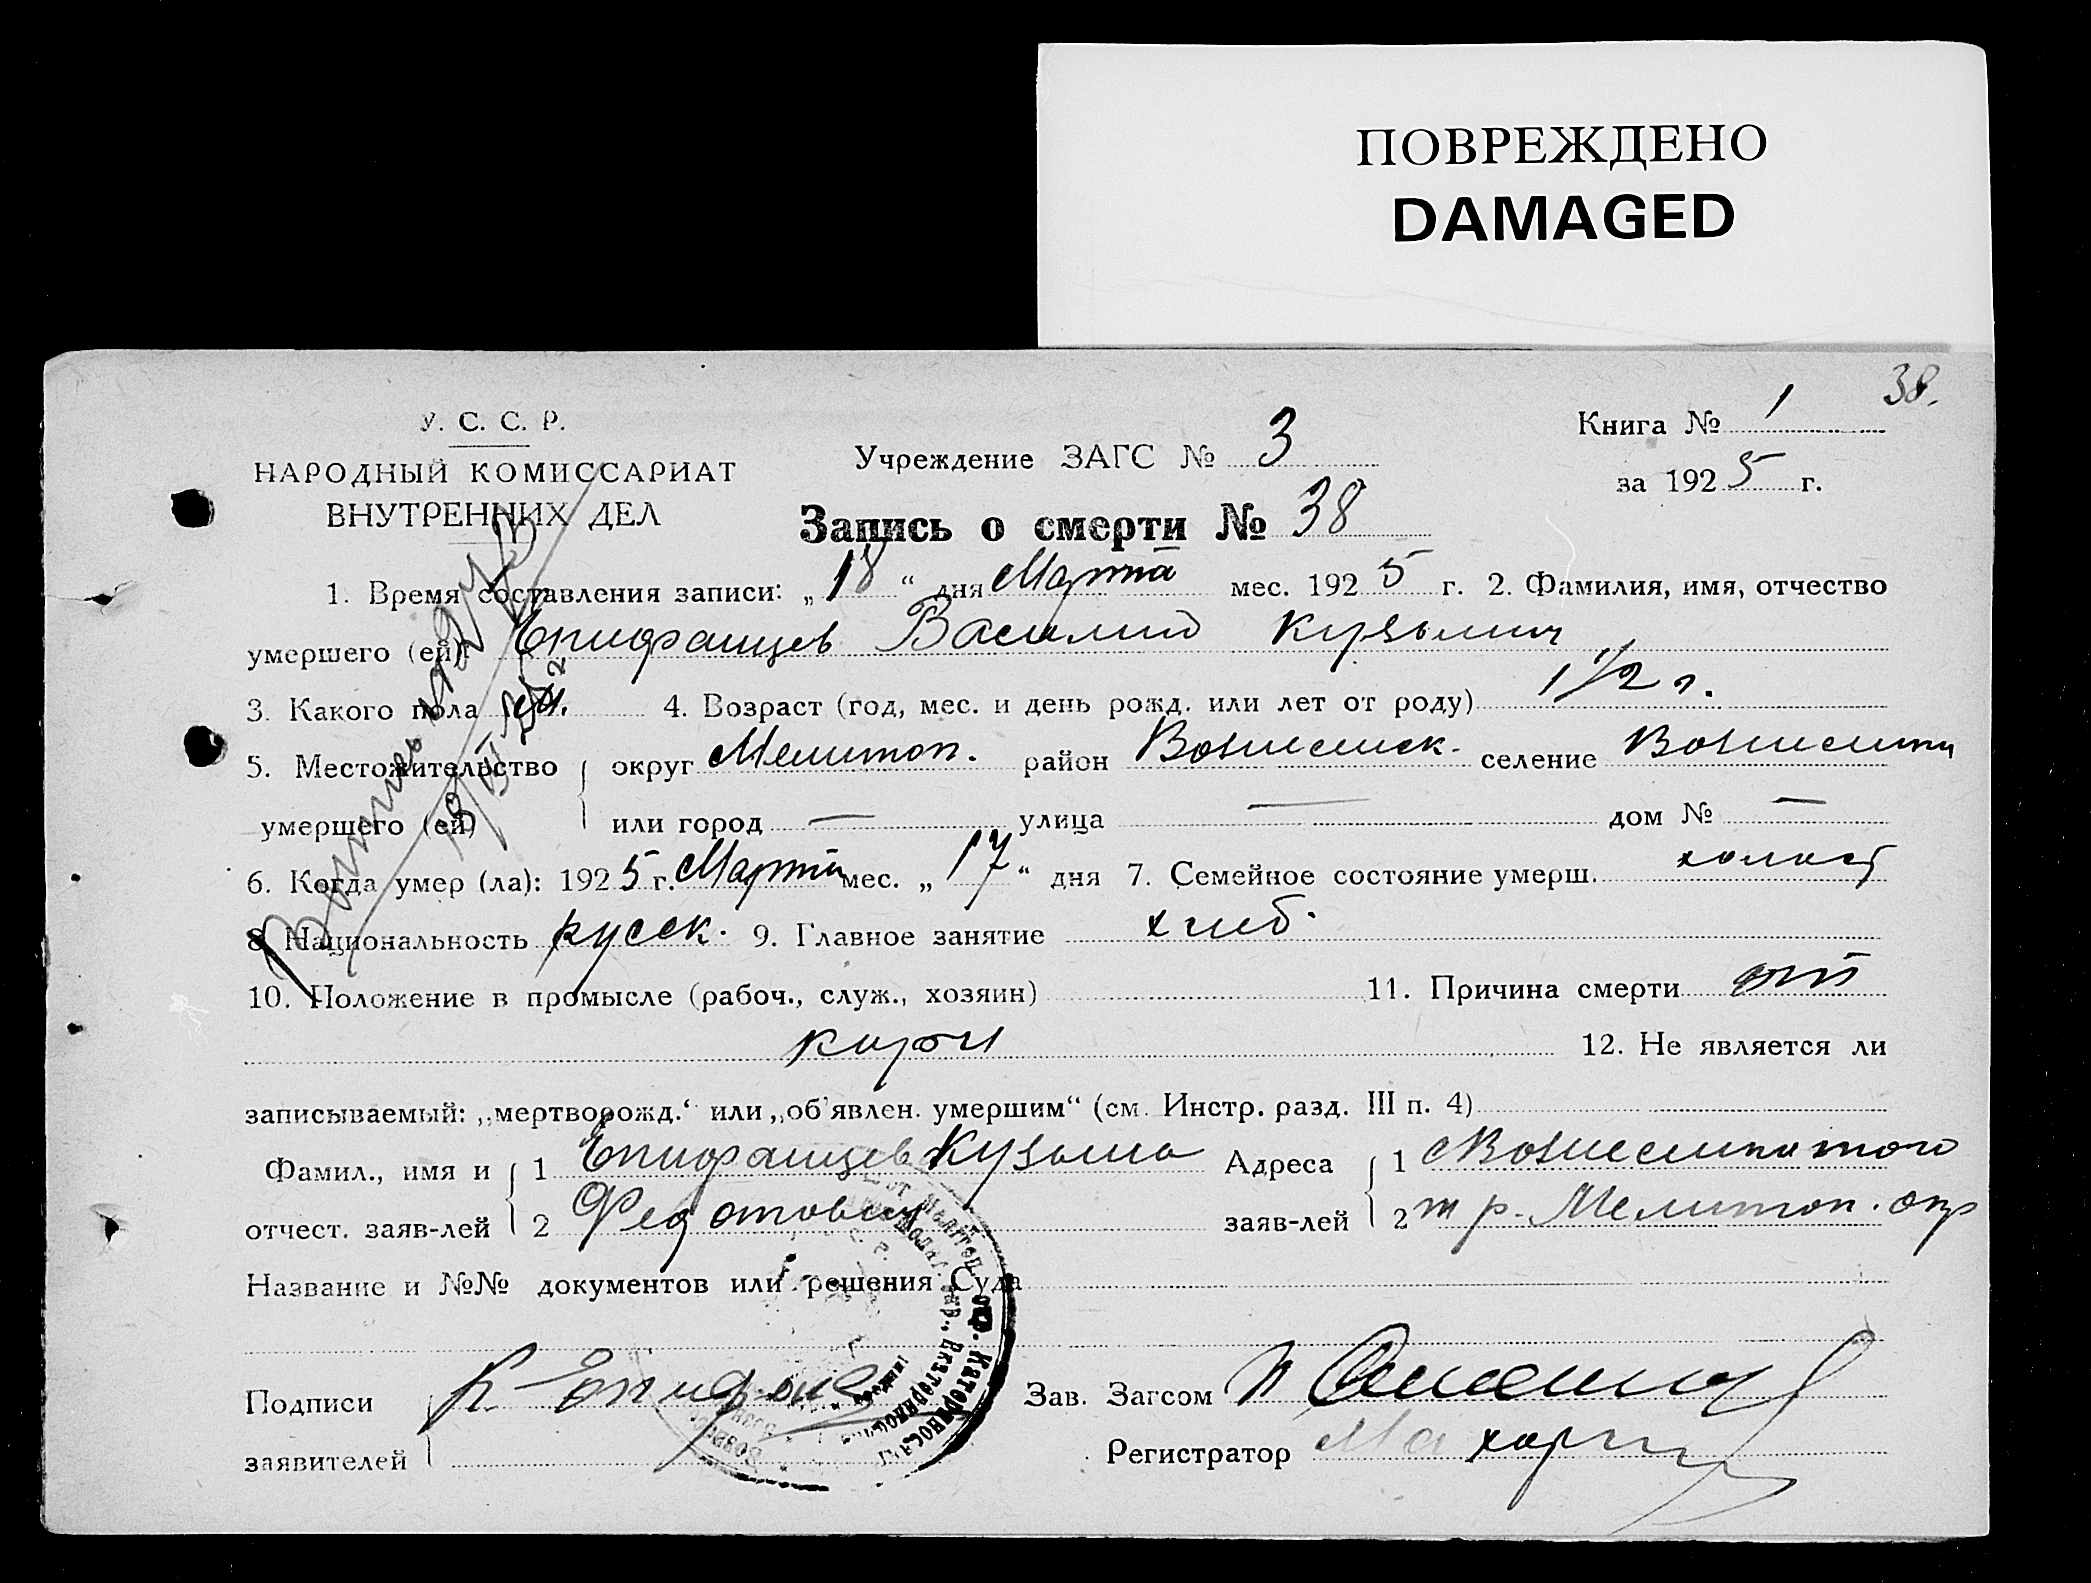 ПОВРЕЖДЕНО
DAMAGED
38.
У. С. С. Р.
НАРОДНЫЙ КОМИССАРИАТ
ВНУТРЕННИХ ДЕЛ
Учреждение ЗАГС № 3
Книга № 1
за 1925 г.
Запись о смерти № 38
1. Время составления записи: „18“ дня Марта мес. 1925 г. 2. Фамилия, имя, отчество
умершего (ей) Епифанцев Василий Кузьмич
3. Какого пола м. 4. Возраст (год, мес. и день рожд. или лет от роду) 1 1/2 г.
5. Местожительство округ Мелитоп. район Вознесенск. селение
умершего (ей) или город — улица — дом № —
6. Когда умер (ла): 1925 г. Марта мес. „17“ дня 7. Семейное состояние умерш. холост
8. Национальность русск. 9. Главное занятие хлеб.
10. Положение в промысле (рабоч., служ., хозяин) 11. Причина смерти от
кори 12. Не является ли
записываемый: „мертворожд.“ или „об'явлен. умершим“ (см. Инстр. разд. III п. 4)
Фамил., имя и 1 Епифанцев Кузьма Адреса 1
отчест. заяв-лей 2 Федотович заяв-лей 2 Мелитоп. окр
Название и №№ документов или решения Суда
Подписи К. Зав. Загсом
заявителей Регистратор